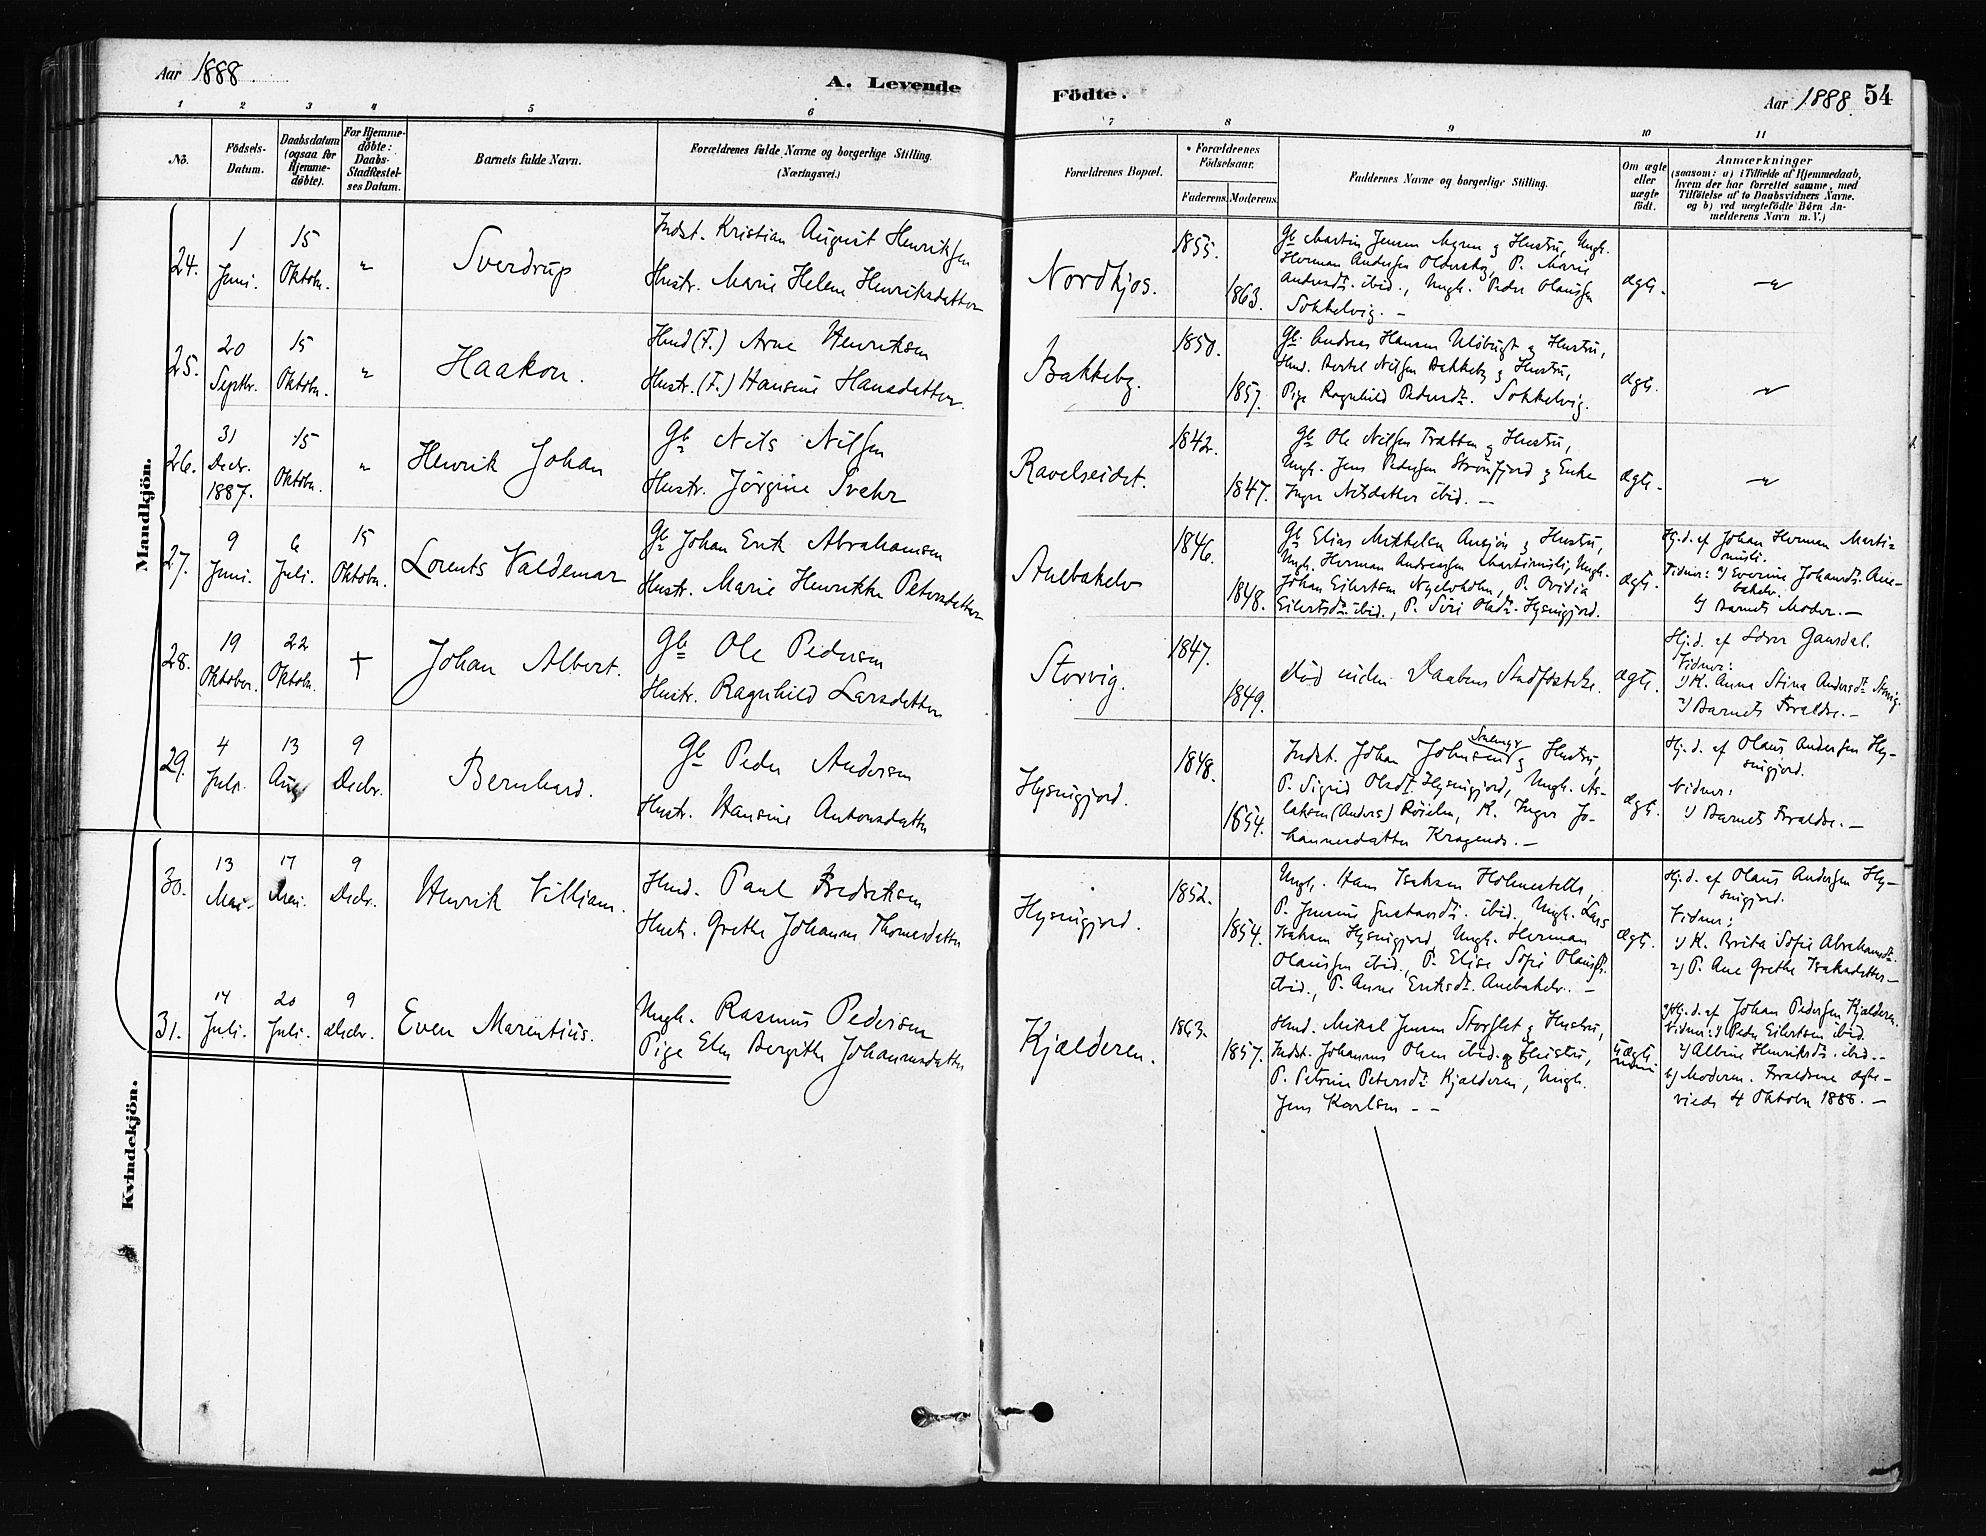 Aar 1888.
A. Levende
Födte.
Aar 1888. 54
1 2 3 4 5 6 7 8 9 10 11
No.
Födsels-
Datum.
Daabsdatum
(ogsaa for
Hjemme-
döbte).
For Hjemme-
döbte:
Daabs-
Stadfæstel-
ses Datum.
Barnets fulde Navn.
Forældrenes fulde Navne og borgerlige Stilling.
(Næringsvei.)
Forældrenes Bopæl.
Forældrenes
Födselsaar.
Faderens. Moderens.
Faddernes Navne og borgerlige Stilling.
Om ægte
eller
uægte
födt.
Anmærkninger
(saasom: a) i Tilfælde af Hjemmedaab,
hvem der har forrettet samme, med
Tilföielse af to Daabsvidners Navne.
og b) ved uægtefödte Börn An-
melderens Navn m. V.)
Mandkjön.
24.
1
Juni.
15
Oktobr.
"
Sverdrup
Indst. Kristian August Henriksen
Hustr. Marie Helene Henriksdatter
Nordkjos.
1855.
1863.
Gb Martin Jensen Myren & Hustru, Ungk.
Herman Andersen Oldervig, P. Marie
Andersdtr. ibid., Ungk. Peder Olaussen
Sokkelvig. —
ægte.
"
25.
20
Septbr.
15
Oktobr.
"
Haakon.
Hmd (F.) Arne Henriksen
Hustr. (F.) Hansine Hansdatter.
Bakkeby.
1850.
1857.
Gb. Andreas Hansen Ulsbugt & Hustru,
Hmd. Bertel Nilsen Bakkeby & Hustru,
Pige Ragnhild Pedersdtr. Sokkelvig.
ægte.
"
26.
31
Decbr.
1887.
15
Oktobr.
"
Henrik Johan
Gb Nils Nilsen
Hustr. Jörgine Svehr
Ravelseidet.
1842.
1847.
Gb Ole Nilsen Tretten & Hustru,
Ungk. Jens Pedersen Straumfjord & Enke
Inger Nilsdatter ibid. —
ægte.
"
27.
9
Juni.
6
Juli.
15
Oktobr.
Lorents Valdemar
Gb Johan Erik Abrahamsen
Hustr. Marie Henrikke Petersdatter
Anebakelv
1846.
1848.
Gb Elias Mikkelsen & Hustru,
Ungk. Herman Andreassen Ungk.
Johan Eilertsen P. Ovidia
Eilertsdtr. ibid., P. Siri Olsdtr. Hysingjord.
ægte.
Hj. d. af Johan Herman
Vidner: 1) Everine Johansdtr. Ane-
bakelv.
2) Barnets Moder. —
28.
19
Oktober.
22
Oktobr.
†
Johan Albert.
Gb Ole Pedersen
Hustr. Ragnhild Larsdatter
Storvig.
1847.
1849.
död inden Daabens Stadfæstelse.
ægte.
Hj. d. af Lærer Gausdal.
Vidner:
1) K. Anna Stina Andersdtr. Storvig.
2) Barnets Foraldre. —
29.
4
Juli.
13
Aug
9
Decbr.
Bernhard.
Gb Peder Andersen
Hustr. Hansine Antonsdatter
Hysingjord.
1848.
1854.
Indst. Johan Johnsen & Hustru,
P. Sigrid Olsdtr. Hysingjord, Ungk. As-
laksen (Anders) Röielen, K. Inger Jo-
hannesdatter Kragenes. —
ægte.
Hj. d. af Olaus Andersen Hy-
singjord.
Vidner:
1) Barnets Foraldre. —
Kvindekjön.
30.
13
Mai.
17
Mai.
9
Decbr.
Henrik Villiam.
Hmd. Paul Fredriksen
Hustr. Grethe Johanna Thomasdatter
Hysingjord.
1852.
1854.
Ungk. Hans Isaksen
P. Jensine Gustavsdtr. ibid., Ungk. Lars
Isaksen Hysingjord, Ungk. Herman
Olaussen ibid., P. Elise Sofie Olausdtr.
ibid., P. Anne Eriksdtr. Anebakelv. —
ægte.
Hj. d. af Olaus Andersen Hy-
singjord.
Vidner:
1) K. Brita Sofie Abrahamsdtr.
2) P. Ane Grethe Isaksdatter —
31.
14
Juli.
20
Juli.
9
Decbr.
Even Marentius.
Ungk. Rasmus Pedersen
Pige Elen Bergithe Johannesdatter
Kjælderen.
1863.
1857.
Hmd. Mikal Jensen Storslet & Hustru,
Indst. Johannes Olsen ibid. & Hustru,
P. Petrine Petersdtr. Kjælderen, Ungk.
Jens Karlsen — —
uægte
a) Hj. d. af Johan Pedersen Kjælderen.
Vidner: 1) Peder Eilertsen ibid.
2) Albine Henriksdtr. ibid. —
b) Moderen. Foraldrene ægte-
viede 4 Oktobr 1888. —